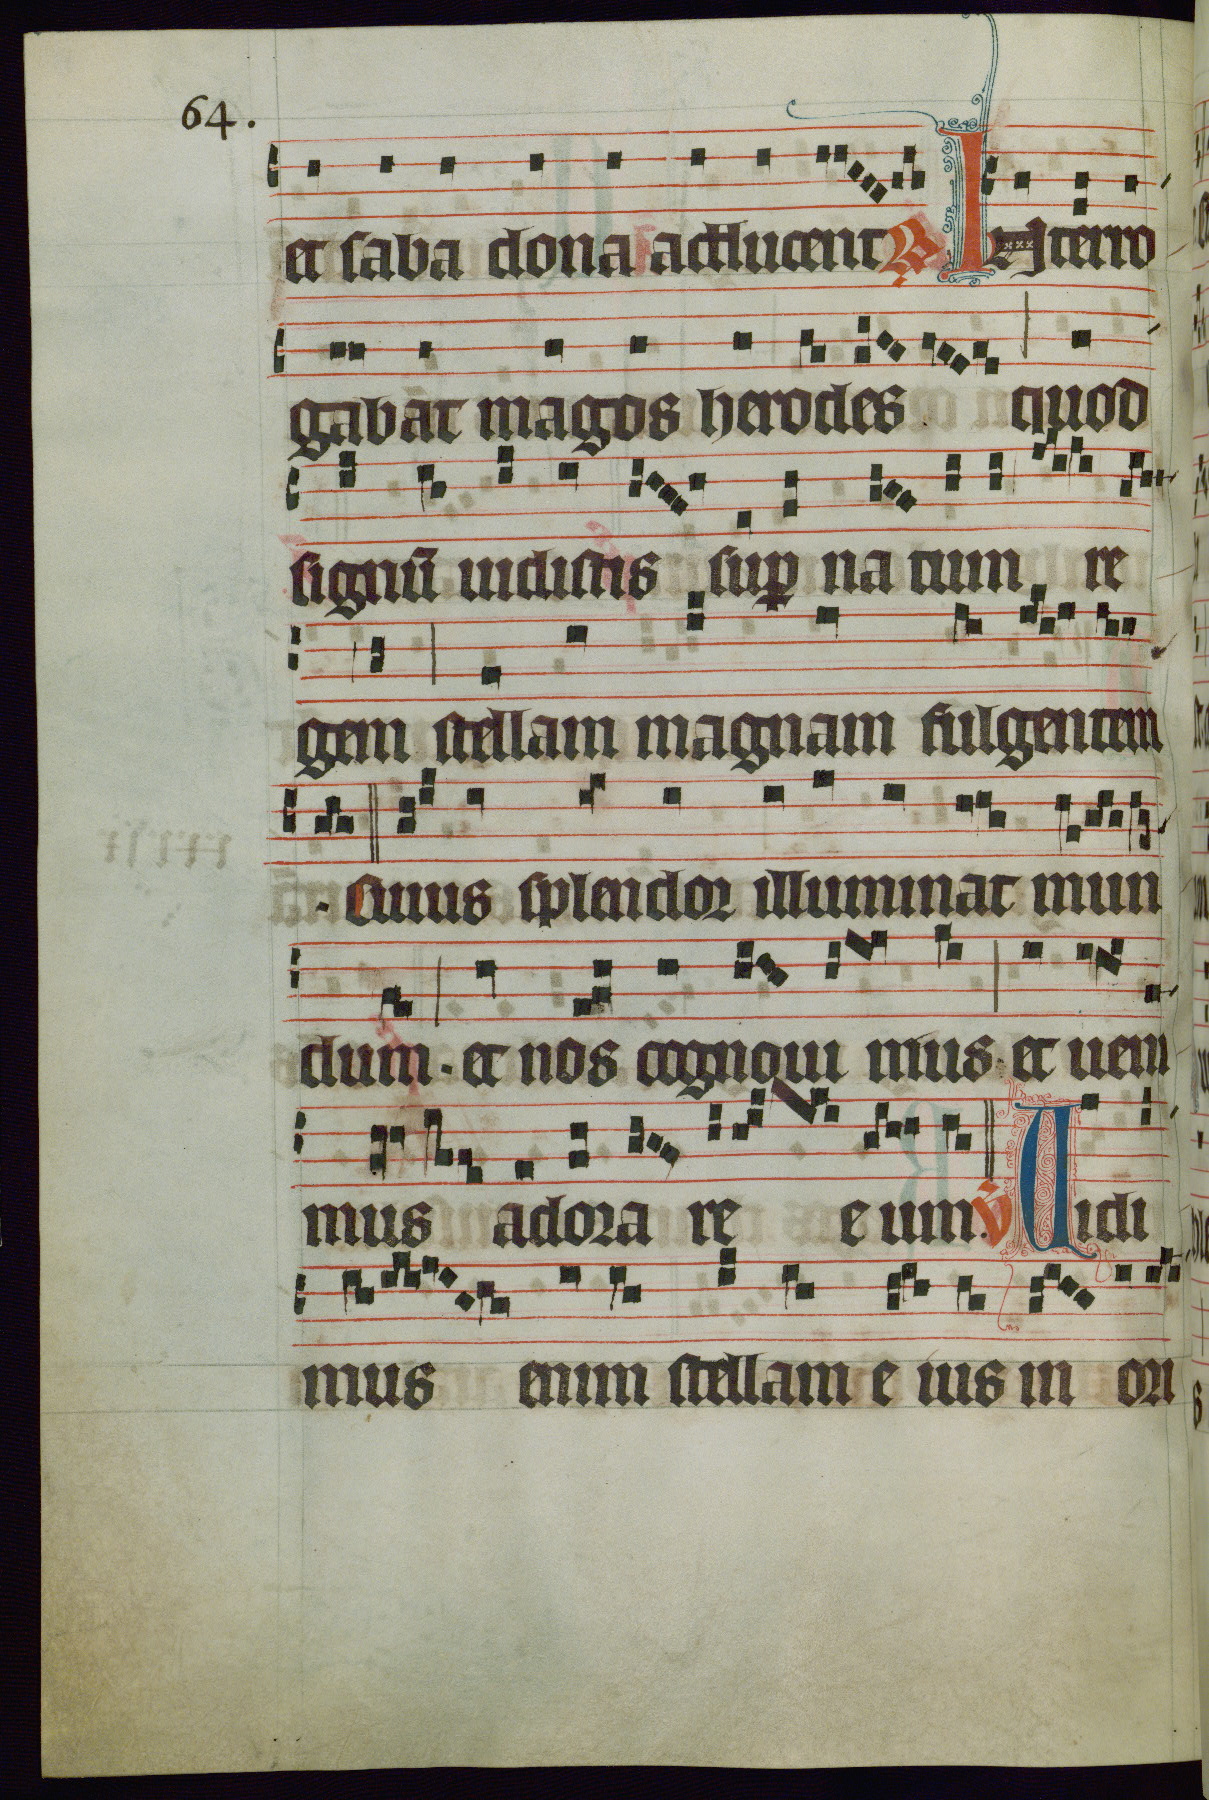 64.
et saba dona adducent R Interro
gabat magos herodes quod
signū uidistis sup natum re
gem stellam magnam fulgentem
. Cuius splendor illuminat mun
dum . et nos cognoui mus . et ueni
mus adora re e um . V Uidi
mus enim stellam e ius in ori